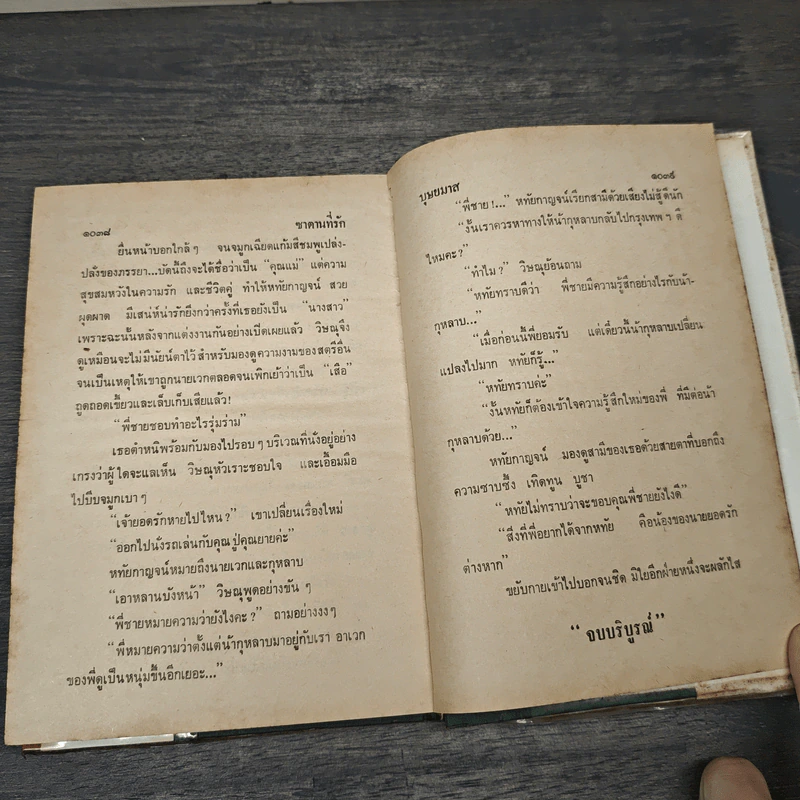 ๑๐๓๘ ซาตานที่รัก
ยื่นหน้าบอกใกล้ๆ จนจมูกเฉียดแก้มสีชมพูเปล่ง-
ปลั่งของภรรยา...บัดนี้ถึงจะได้ชื่อว่าเป็น “คุณแม่” แต่ความ
สุขสมหวังในความรัก และชีวิตคู่ ทำให้หทัยกาญจน์ สวย
ผุดผาด มีเสน่ห์น่ารักยิ่งกว่าครั้งที่เธอยังเป็น “นางสาว”
เพราะฉะนั้นหลังจากแต่งงานกันอย่างเปิดเผยแล้ว วิษณุจึง
ดูเหมือนจะไม่มีนัยน์ตาไว้ สำหรับมองดูความงามของสตรีอื่น
จนเป็นเหตุให้เขาถูกนายเวกตลอดจนเพิกเย้าว่าเป็น “เสือ”
ถูกถอดเขี้ยวและเล็บเก็บเสียแล้ว!
“พี่ชายชอบทำอะไรรุ่มร่าม”
เธอตำหนิพร้อมกับมองไปรอบๆ บริเวณที่นั่งอยู่อย่าง
เกรงว่าผู้ใดจะแลเห็น วิษณุหัวเราะชอบใจ และเอื้อมมือ
ไปบีบจมูกเบาๆ
“เจ้ายอดรักหายไปไหน?” เขาเปลี่ยนเรื่องใหม่
“ออกไปนั่งรถเล่นกับคุณปู่คุณยายค่ะ”
หทัยกาญจน์หมายถึงนายเวกและกุหลาบ
“เอาหลานบังหน้า” วิษณุพูดอย่างขันๆ
“พี่ชายหมายความว่ายังไงคะ?” ถามอย่างงงๆ
“พี่หมายความว่าตั้งแต่น้ากุหลาบมาอยู่กับเรา อาเวก
ของพี่ดูเป็นหนุ่มขึ้นอีกเยอะ...”
บุษยมาส ๑๐๓๙
“พี่ชาย!...” หทัยกาญจน์เรียกสามีด้วยเสียงไม่สู้ดีนัก
“งั้นเราควรหาทางให้น้ากุหลาบกลับไปกรุงเทพฯ ดี
ไหมคะ?”
“ทำไม?” วิษณุย้อนถาม
“หทัยทราบดีว่า พี่ชายมีความรู้สึกอย่างไรกับน้า-
กุหลาบ...”
“เมื่อก่อนนี้พี่ยอมรับ แต่เดี๋ยวนี้น้ากุหลาบเปลี่ยน
แปลงไปมาก หทัยก็รู้...”
“หทัยทราบค่ะ”
“งั้นหทัยก็ต้องเข้าใจความรู้สึกใหม่ของพี่ ที่มีต่อน้า
กุหลาบด้วย...”
หทัยกาญจน์ มองดูสามีของเธอด้วยสายตาที่บอกถึง
ความซาบซึ้ง เทิดทูน บูชา
“หทัยไม่ทราบว่าจะขอบคุณพี่ชายยังไงดี”
“สิ่งที่พี่อยากได้จากหทัย คือน้องของนายยอดรัก
ต่างหาก”
ขยับกายเข้าไปบอกจนชิด มิไยอีกฝ่ายหนึ่งจะผลักไส
“จบบริบูรณ์”